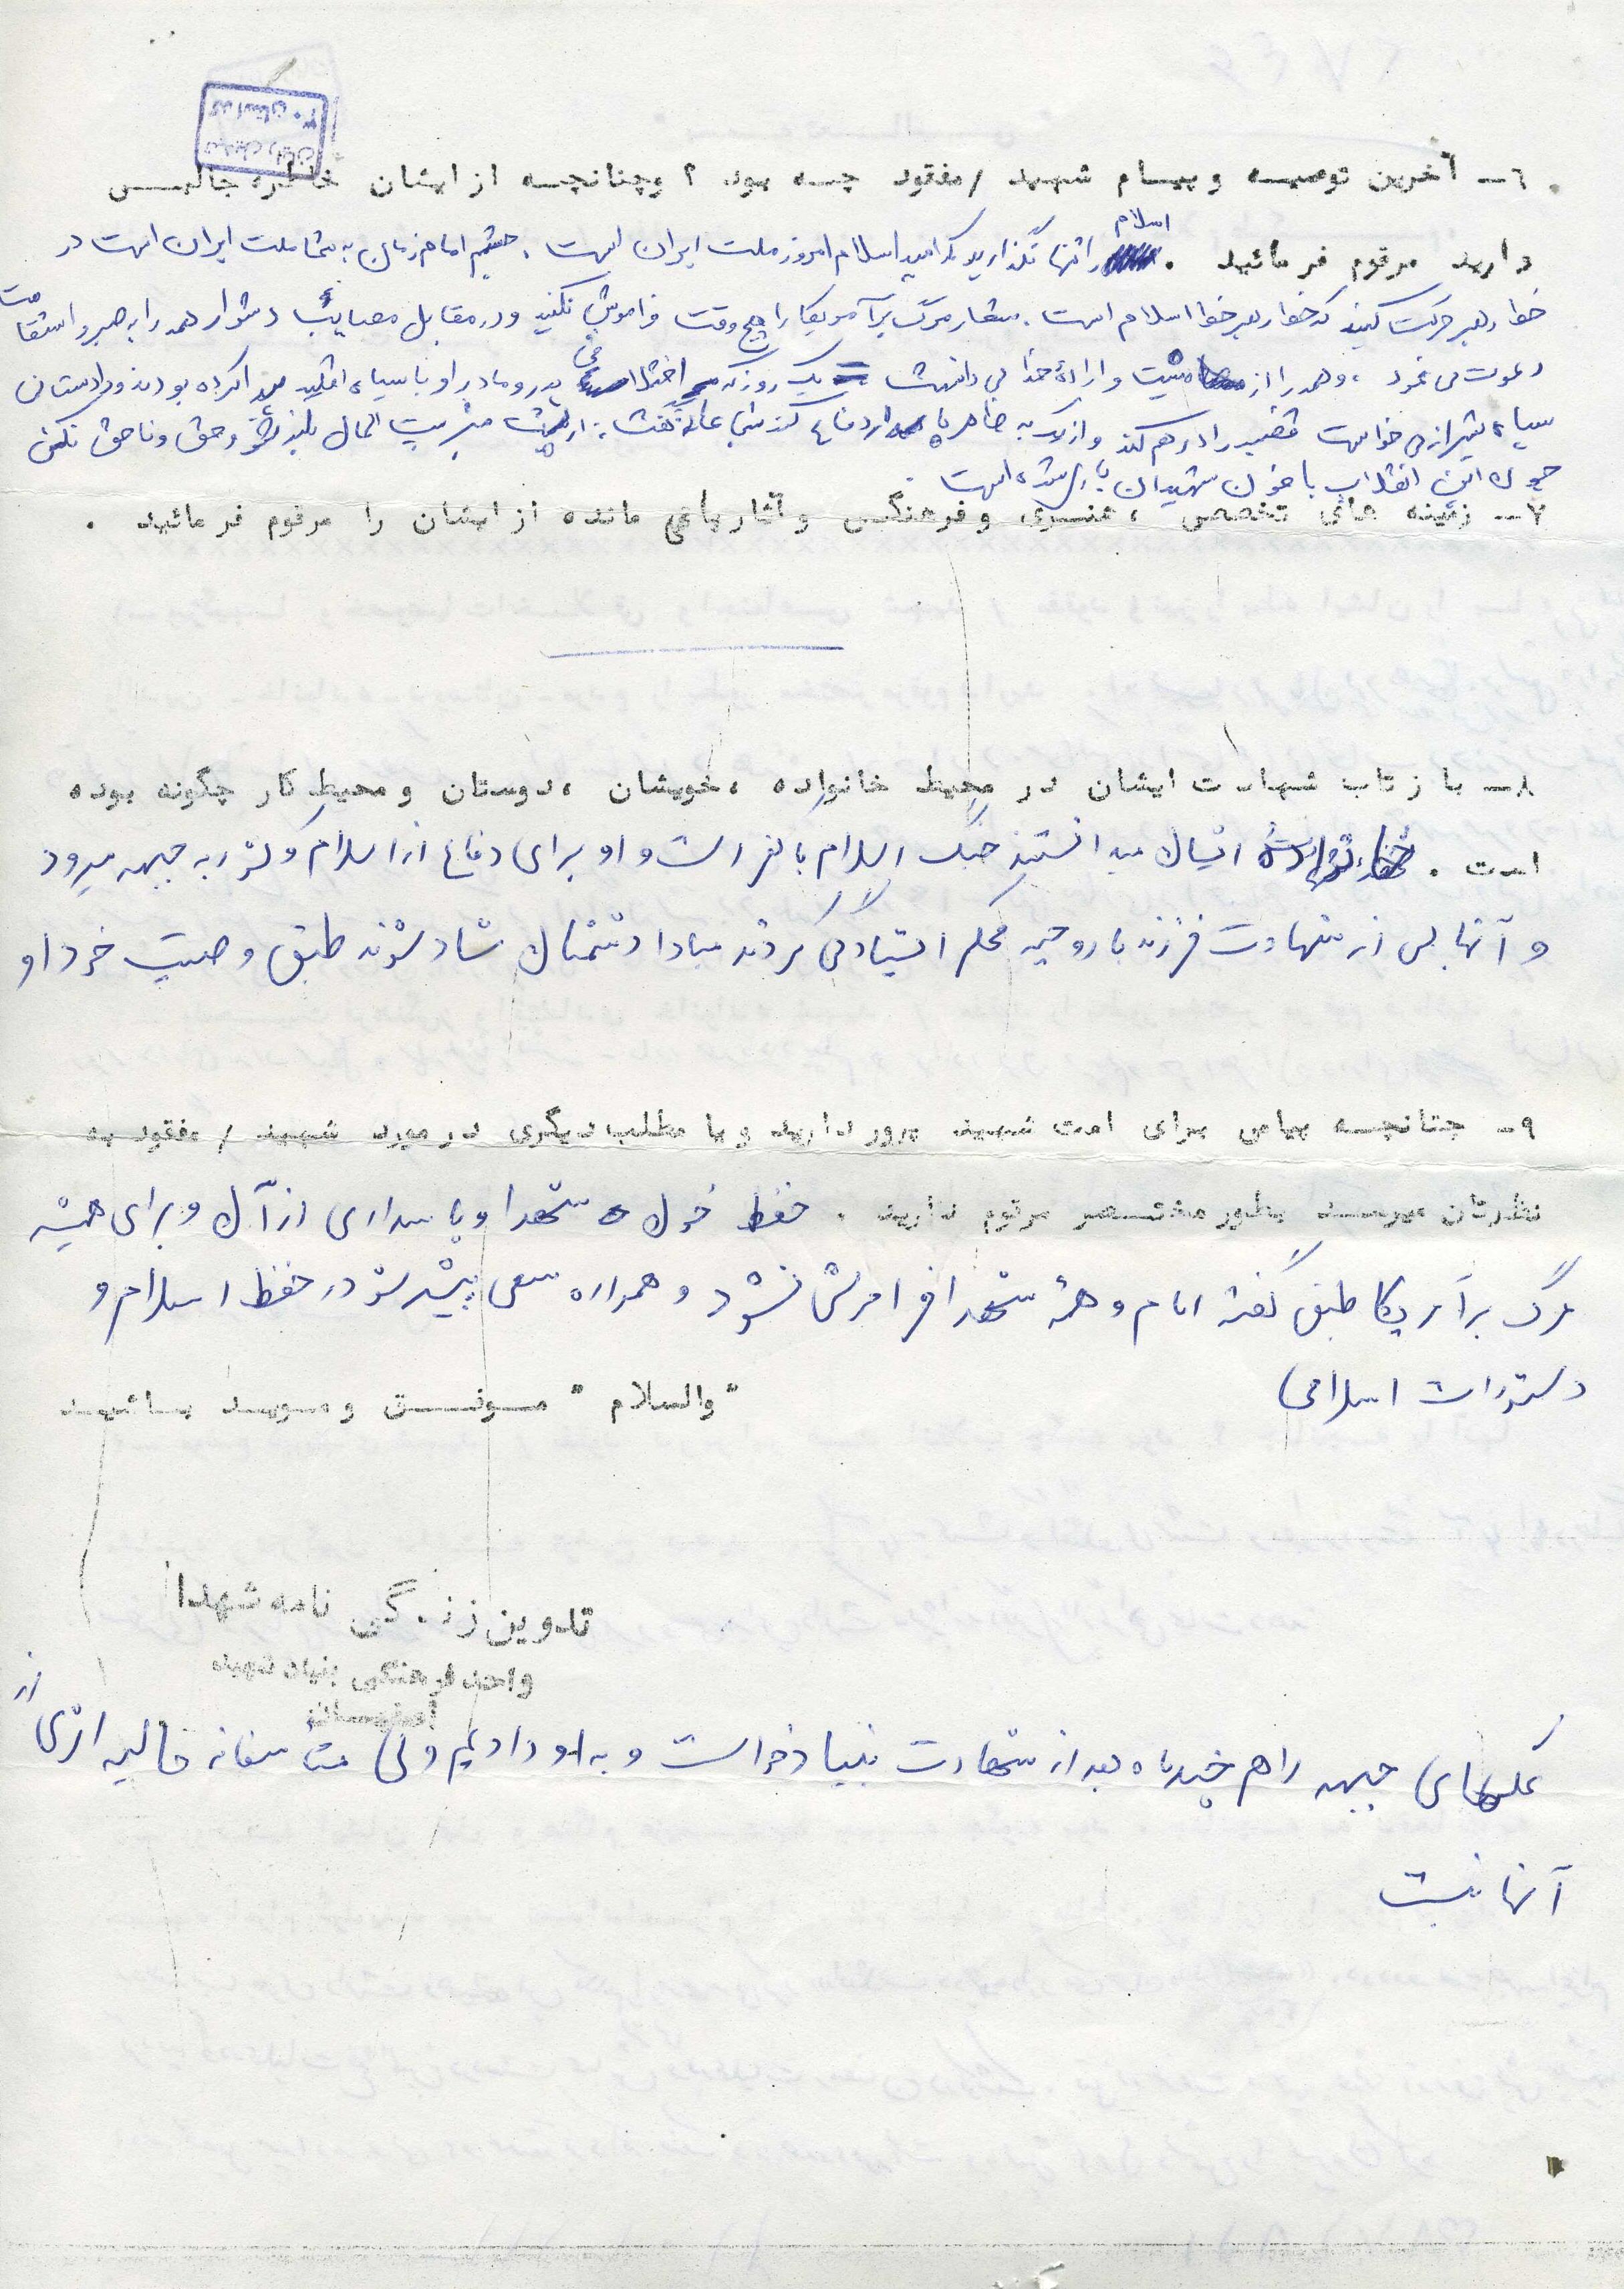 ۶ـ آخرین توصیه و پیام شهید / مفقود چه بود ؟ وچنانچه از ایشان خاطره جالبی
دارید مرقوم فرمائید . اسلام را تنها نگذارید که امید اسلام امروز ملت ایران است . چشم امام زمان به شما ملت ایران است در
خط رهبر حرکت کنید که خط رهبر خط اسلام است . شعار مرگ بر آمریکا را هیچ وقت فراموش نکنید و در مقابل مصایب دشوار همه را به صبر و استقامت
دعوت می نمود ، و همه را از مشیت و ارادهٔ خدا می دانست یک روز که اختلافی پدر و مادر او با سپاه پیدا کرده بودند و دادستانی
سپاه شیراز می خواست قضیه را درهم کند و از که به ظاهر دفاع کند گفت : از بیت المال بلند شو و حق و ناحق نکن
چون این انقلاب با خون شهیدان شده است
۷ـ زمینه های تخصصی ، هنری و فرهنگی و آثار باقی مانده از ایشان را مرقوم فرمائید .
۸ـ بازتاب شهادت ایشان در محیط خانواده ، خویشان ، دوستان و محیط کار چگونه بوده
است . خانواده ایشان میدانستند جنگ اسلام با کفر است و او برای دفاع از اسلام و کشور به جبهه میرود
و آنها پس از شهادت فرزند با روحیه محکم ایستادگی کردند مبادا دشمنان شاد شوند طبق وصیت خود او
۹ـ چنانچه پیامی برای امت شهید پرور دارید و یا مطلب دیگری در مورد شهید / مفقود به
نظرتان میرسد بطور مختصر مرقوم دارید . حفظ خون شهدا و پاسداری از آن و برای همیشه
مرگ بر آمریکا طبق گفته امام و همهٔ شهدا فراموش نشود و همواره سعی بیشتر شود در حفظ اسلام و
دستورات اسلامی
"والسلام" موفق و موید باشید
تدوین زندگی نامه شهدا
واحد فرهنگی بنیاد شهید
اصفهان
عکسهای جبهه را هم بعد از شهادت بنیاد خواست و به او دادیم ولی متأسفانه حالیه اثری از
آنها نیست